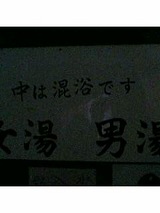 中は混浴です
女湯 男湯